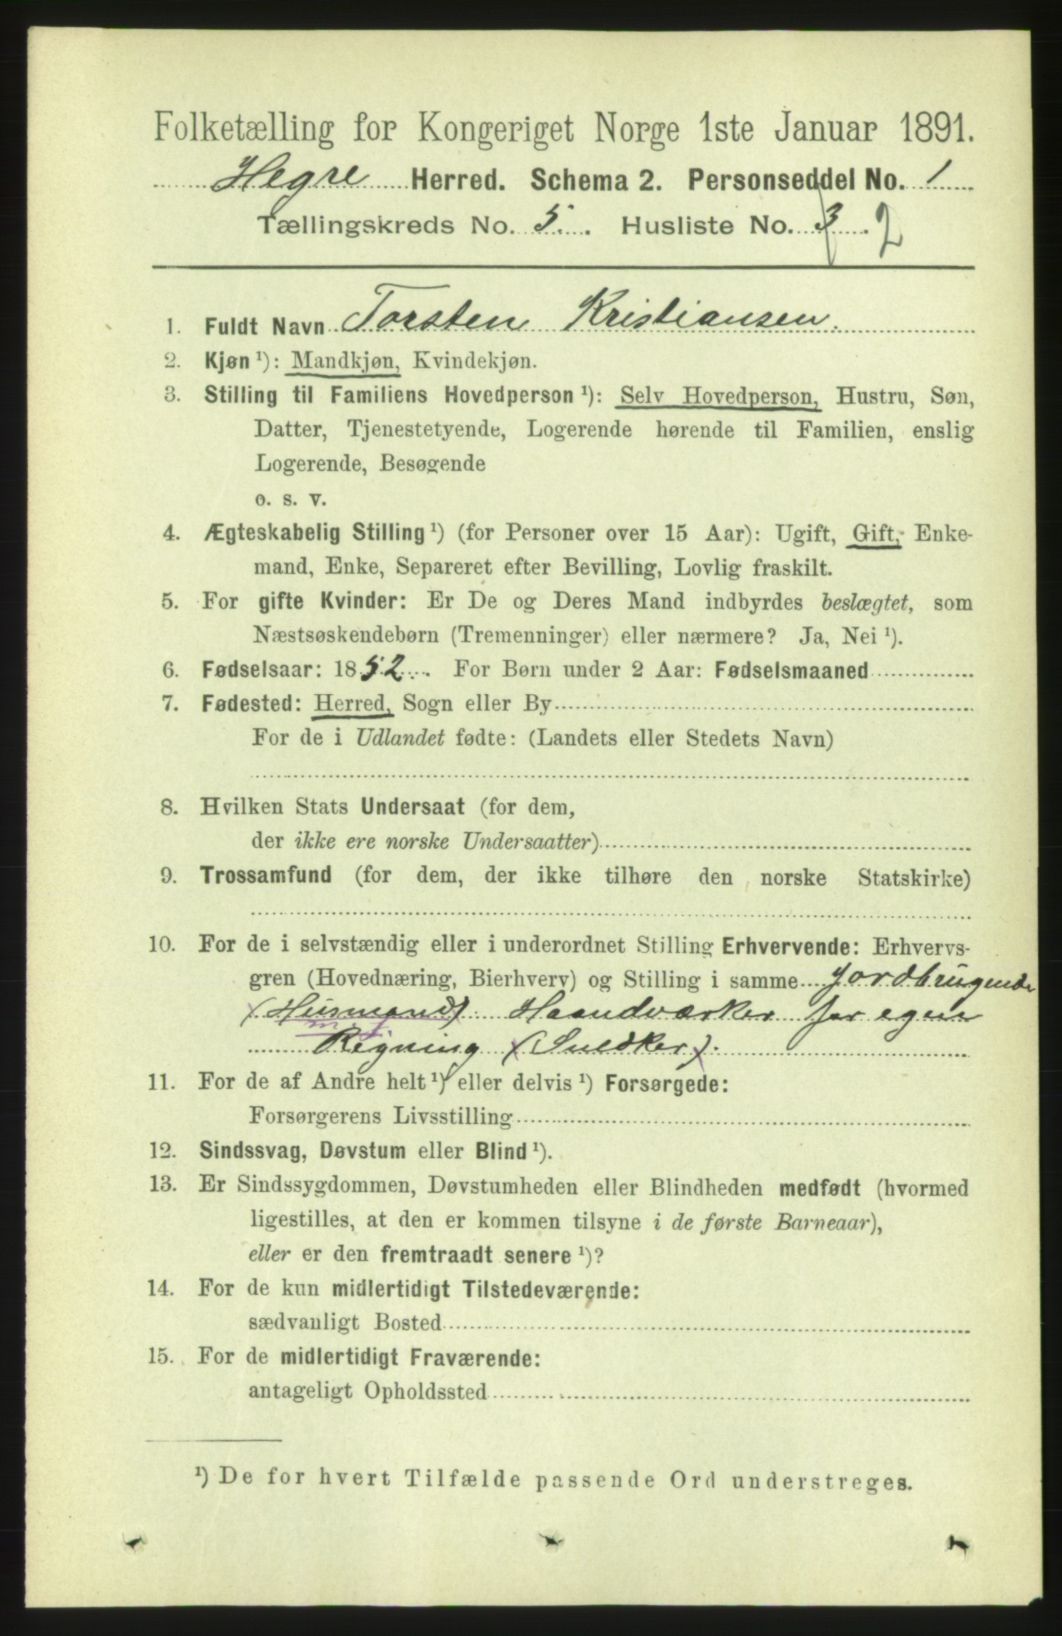 Folketælling for Kongeriget Norge 1ste Januar 1891.
Hegre Herred. Schema 2. Personseddel No. 1
Tællingskreds No. 5. Husliste No. 3. 2
1. Fuldt Navn Torsten Kristiansen.
2. Kjøn ¹): Mandkjøn, Kvindekjøn.
3. Stilling til Familiens Hovedperson ¹): Selv Hovedperson, Hustru, Søn,
Datter, Tjenestetyende, Logerende hørende til Familien, enslig
Logerende, Besøgende
o. s. v.
4. Ægteskabelig Stilling ¹) (for Personer over 15 Aar): Ugift, Gift, Enke-
mand, Enke, Separeret efter Bevilling, Lovlig fraskilt.
5. For gifte Kvinder: Er De og Deres Mand indbyrdes beslægtet, som
Næstsøskendebørn (Tremenninger) eller nærmere? Ja, Nei ¹).
6. Fødselsaar: 1852. For Børn under 2 Aar: Fødselsmaaned
7. Fødested: Herred, Sogn eller By
For de i Udlandet fødte: (Landets eller Stedets Navn)
8. Hvilken Stats Undersaat (for dem,
der ikke ere norske Undersaatter)
9. Trossamfund (for dem, der ikke tilhøre den norske Statskirke)
10. For de i selvstændig eller i underordnet Stilling Erhvervende: Erhvervs-
gren (Hovednæring, Bierhverv) og Stilling i samme Jordbrugende
(Husmand) Haandværker for egen
Regning (Snedker).
11. For de af Andre helt ¹) eller delvis ¹) Forsørgede:
Forsørgerens Livsstilling
12. Sindssvag, Døvstum eller Blind ¹).
13. Er Sindssygdommen, Døvstumheden eller Blindheden medfødt (hvormed
ligestilles, at den er kommen tilsyne i de første Barneaar),
eller er den fremtraadt senere ¹)?
14. For de kun midlertidigt Tilstedeværende:
sædvanligt Bosted
15. For de midlertidigt Fraværende:
antageligt Opholdssted
¹) De for hvert Tilfælde passende Ord understreges.